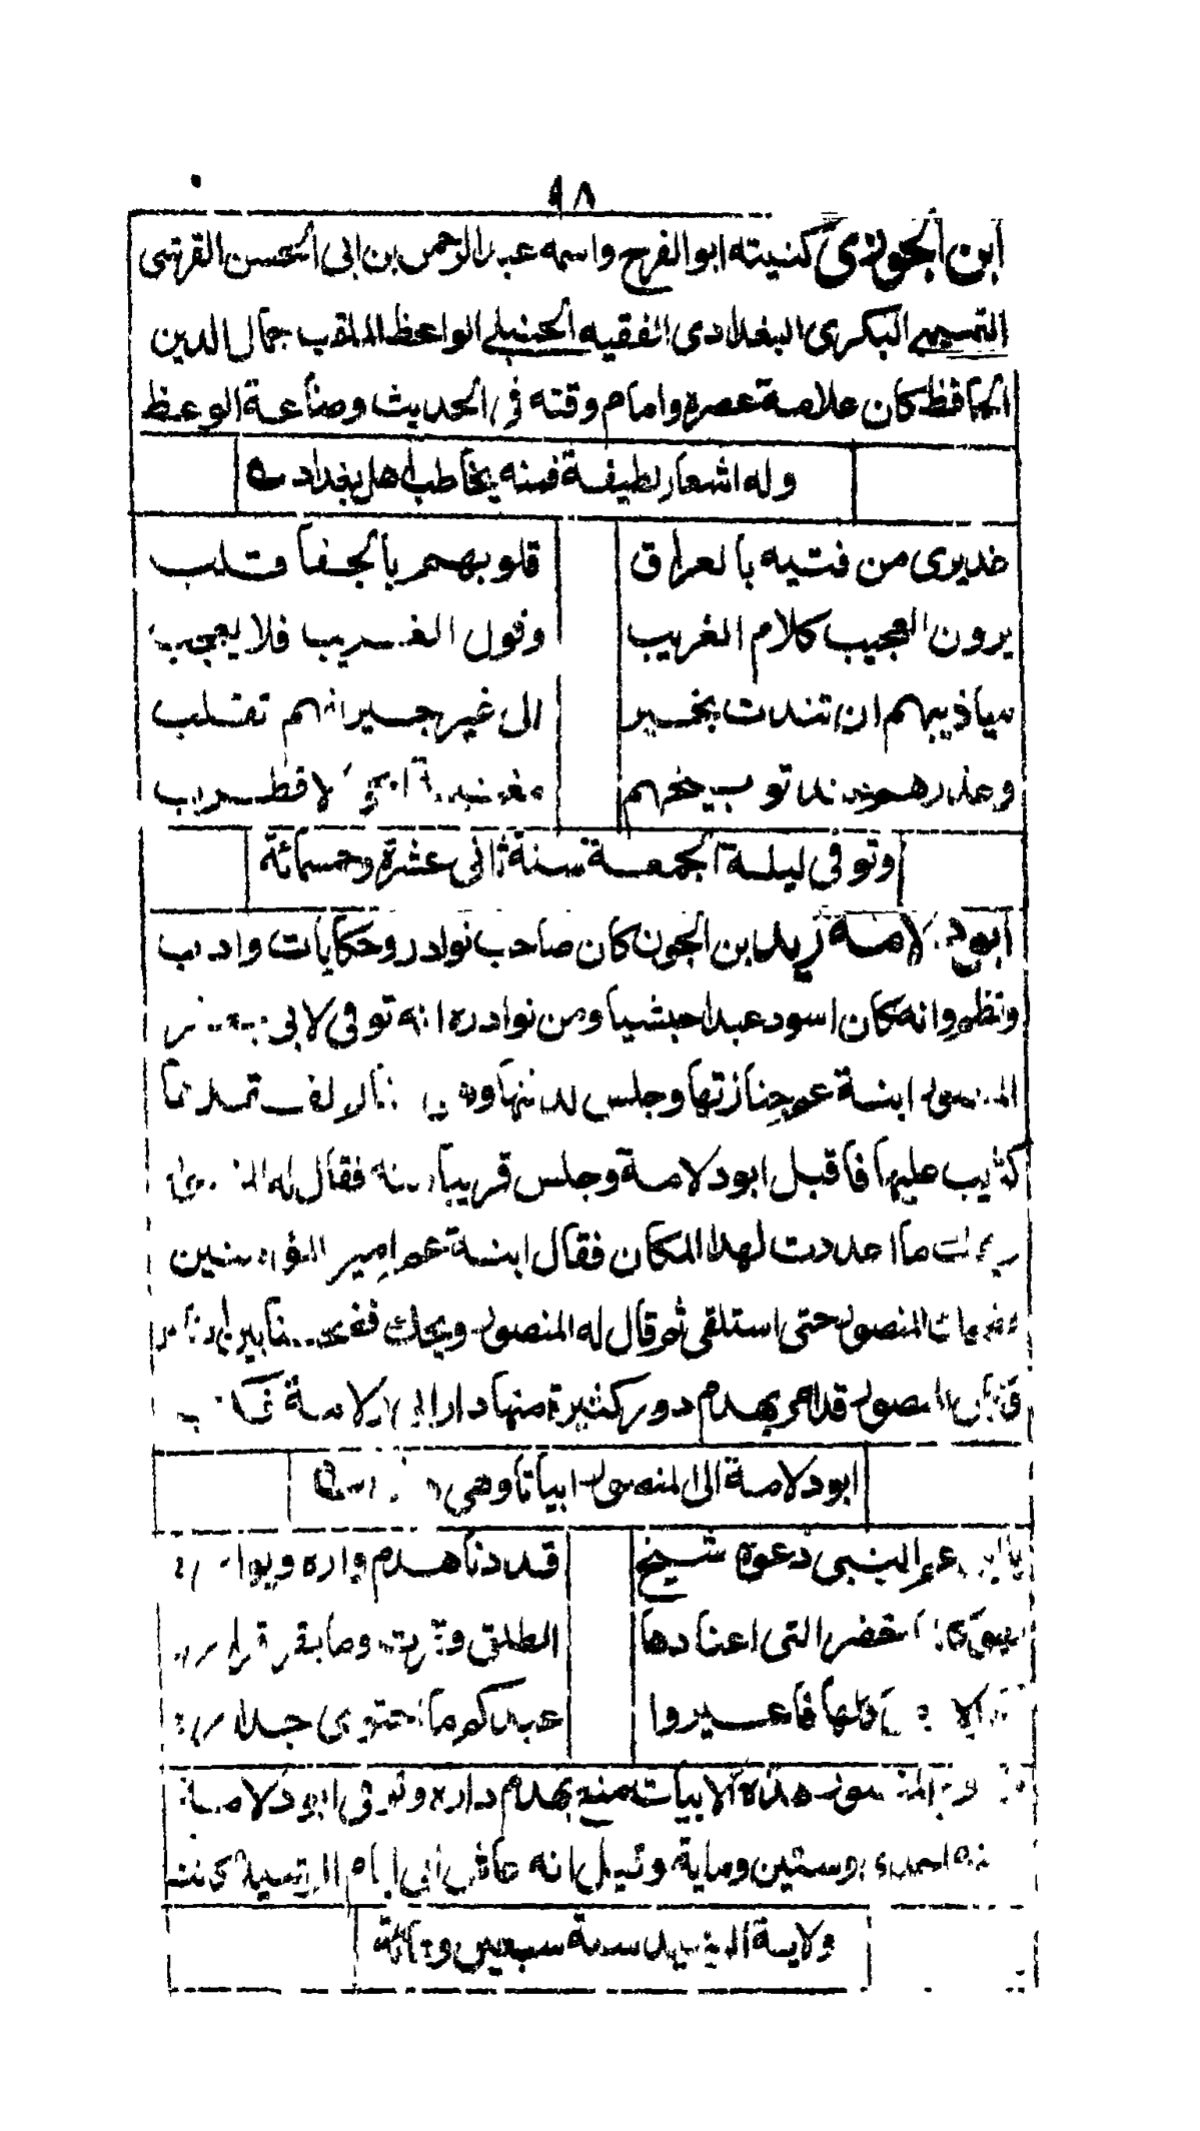 ٩٨
ابن الجوزى كنيته ابو الفرج واسمه عبد الرحمن بن ابى الحسن القرشى
التميمى البكرى البغدادى الفقيه الحنبلى الواعظ الملقب جمال الدين
الحافظ كان علامة عصره وامام وقته فى الحديث وصناعة الوعظ
وله اشعار لطيفة فمنه يخاطب اهل بغداد
عذيرى من فتيه بالعراق قلوبهم بالجفا قلب
يرون العجيب كلام الغريب وقول الغريب فلا يعجب
ميازيبهم ان تندت بخير الى غير جيرانهم تقلب
وعذرهم عند توبيخهم مغنية لا تطرب
وتوفى ليلة الجمعة سنة ثانى عشرة وخمسمائة
ابو دلامة زيد ابن الجون كان صاحب نوادر وحكايات وادب
ونظم وانه كان اسود عبدا حبشيا ومن نوادره انه توفى لابى جعفر
المنصور ابنة عم جنازتها وجلس لدفنها وهو
كئيب عليها فاقبل ابو دلامة وجلس قريبا منه فقال له المنصور
ويحك ما اعددت لهذا المكان فقال ابنة عم امير المؤمنين
فضحك المنصور حتى استلقى ثم قال له المنصور ويحك
المنصور قد امر بهدم دور كثيرة منها دار ابى دلامة فكتب
ابو دلامة الى المنصور ابياتا وهى
يا ابن عم النبى دعوة شيخ قد دنا هدم داره
التى اعتادها الطلق وما يقر قراره
كلها فاعيروا عبدكم ما احتوى جداره
المنصور هذه الابيات منع بهدم داره وتوفى ابو دلامة
سنة احدى وستين وماية وقيل انه عاش الى ايام الرشيد وكانت
ولاية الرشيد سنة سبعين ومائة